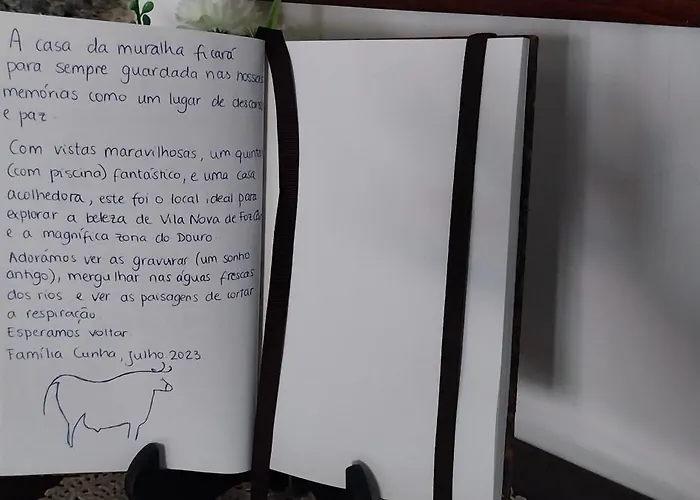 A casa da muralha ficará
para sempre guardada nas nossas
memórias como um lugar de descanso
e paz.
Com vistas maravilhosas, um quintal
(com piscina) fantástico, e uma casa
acolhedora, este foi o local ideal para
explorar a beleza de Vila Nova de Foz Côa
e a magnífica zona do Douro
Adorámos ver as gravuras (um sonho
antigo), mergulhar nas águas frescas
dos rios e ver as paisagens de cortar
a respiração.
Esperamos voltar
Família Cunha, julho 2023